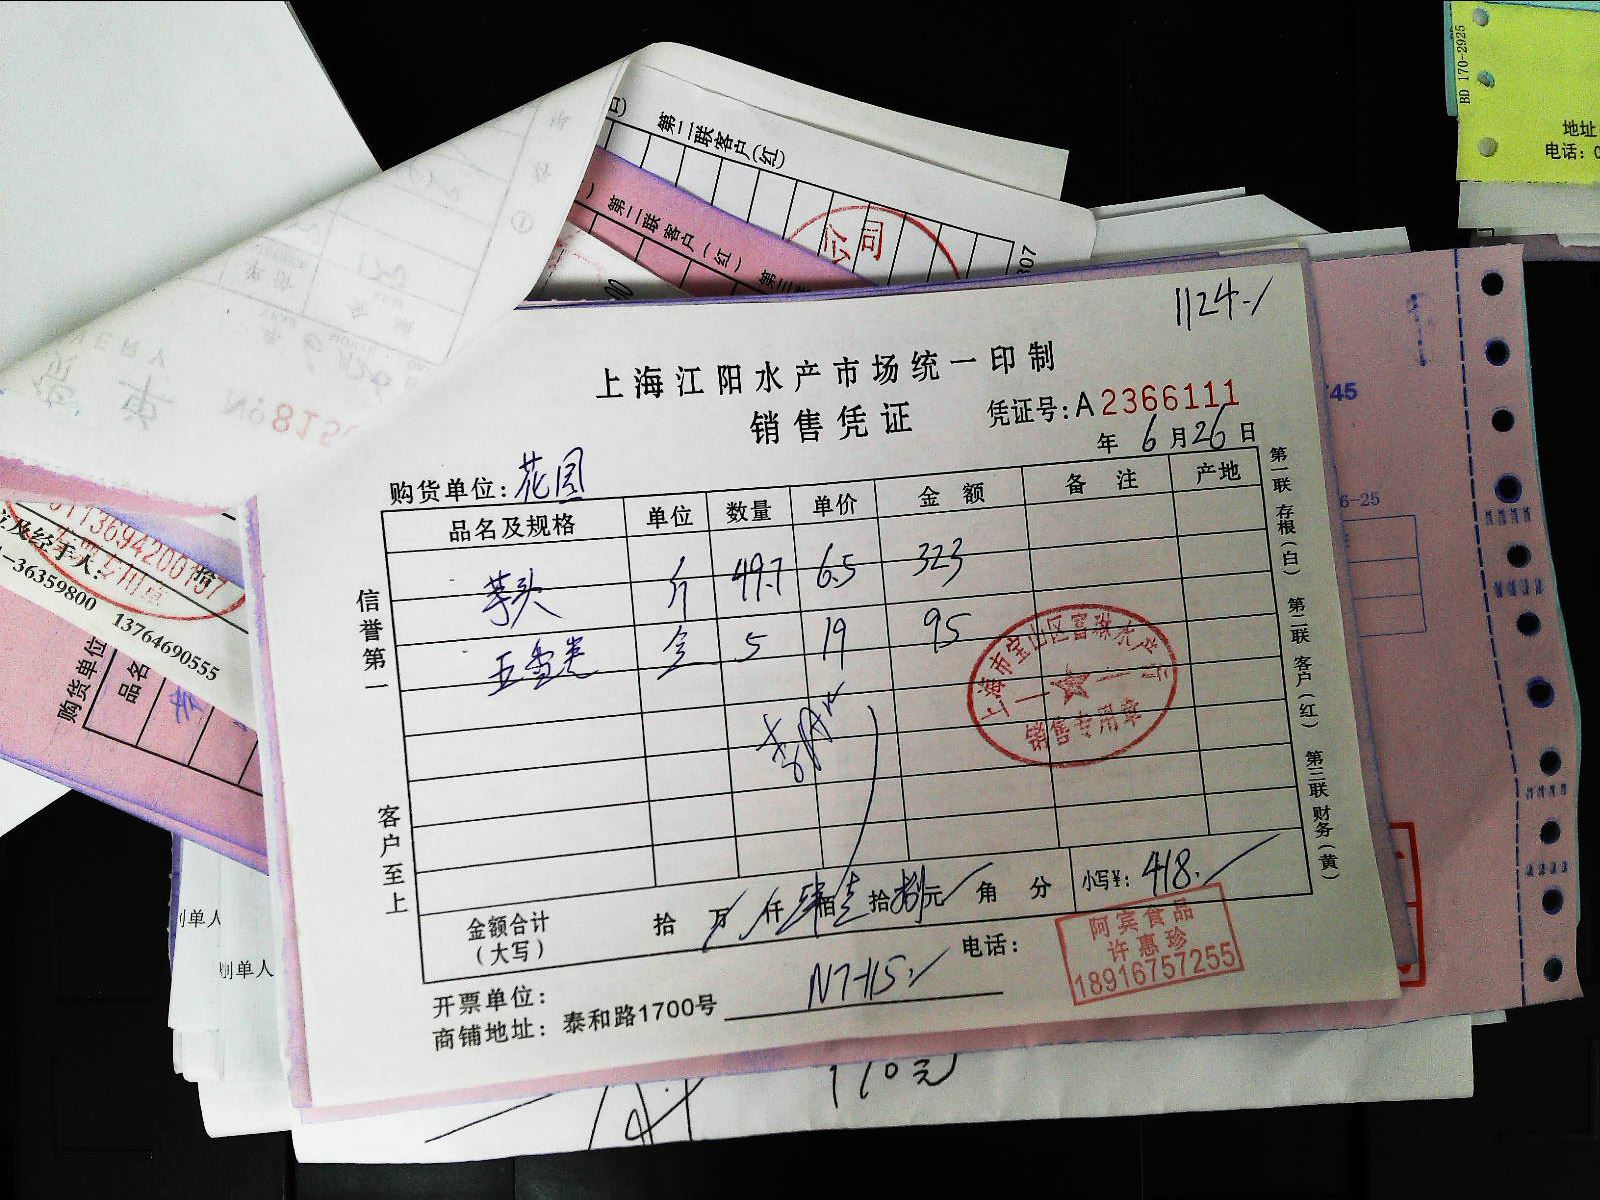 BD 170-2925
地址
电话:0
第二联客户(红)
公司
307
第二联客户(红)
1124.-
上海江阳水产市场统一印制
销售凭证
凭证号:A2366111
年 6月26日
购货单位:花园
品名及规格 单位 数量 单价 金额 备注 产地
芋头 斤 49.7 6.5 323
5 19 95
信誉第一
客户至上
第一联 存根(白) 第二联 客户(红) 第三联 财务(黄)
上海市宝山区富珠水产行
销售专用章
金额合计(大写) 拾 万 仟 肆佰壹拾捌元 角 分 小写¥:418.
开票单位:
电话:
商铺地址:泰和路1700号 N7-115
阿宾食品
许惠珍
18916757255
45
6-25
及经手人:
-36359800 13764690555
购货单位
品名
别单人
别单人
110元